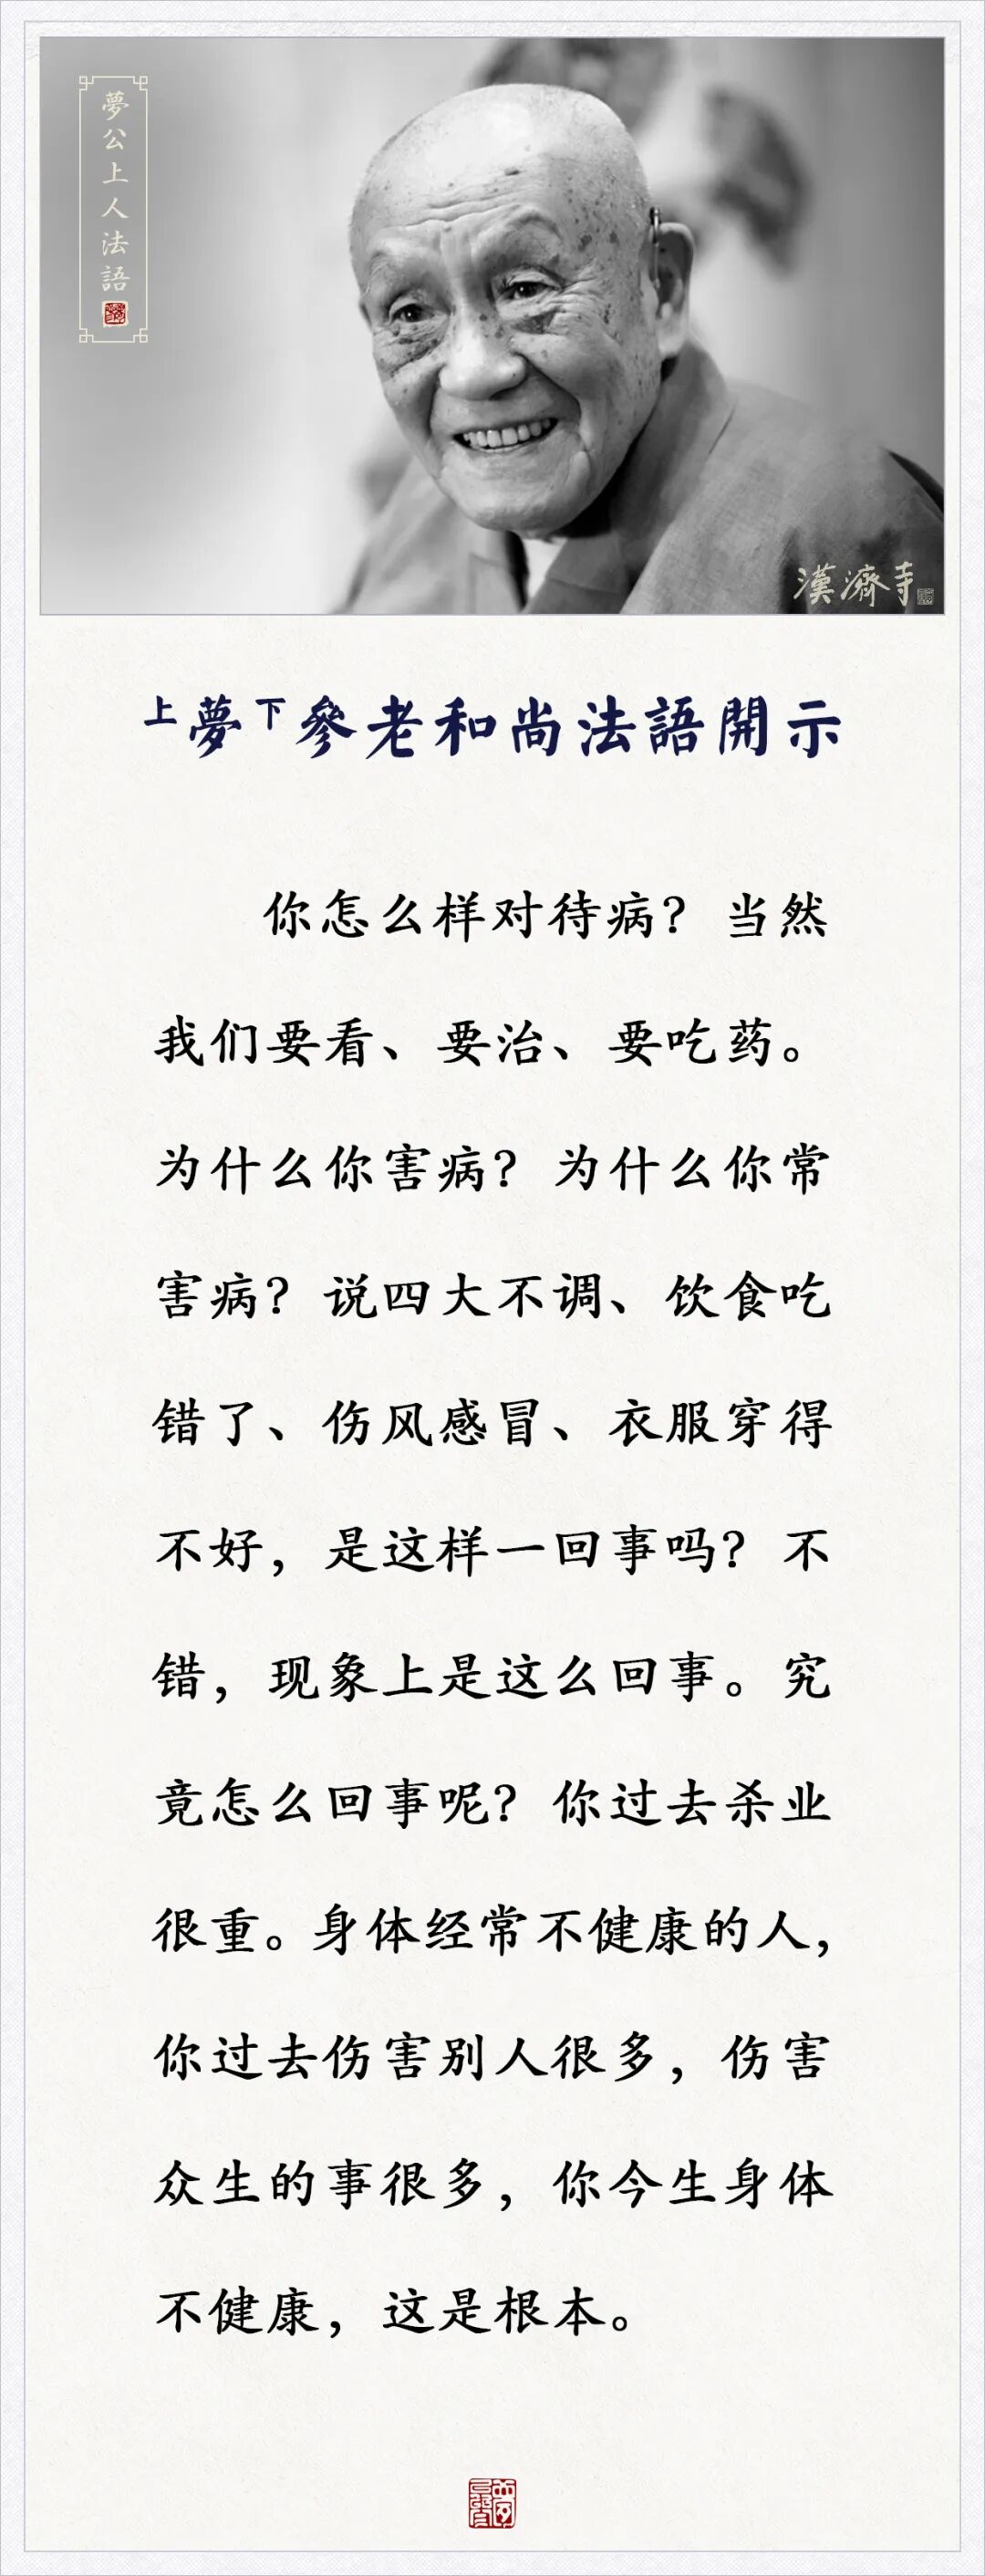 夢公上人法語
漢濟寺
上夢下參老和尚法語開示
你怎么样对待病？当然
我们要看、要治、要吃药。
为什么你害病？为什么你常
害病？说四大不调、饮食吃
错了、伤风感冒、衣服穿得
不好，是这样一回事吗？不
错，现象上是这么回事。究
竟怎么回事呢？你过去杀业
很重。身体经常不健康的人，
你过去伤害别人很多，伤害
众生的事很多，你今生身体
不健康，这是根本。